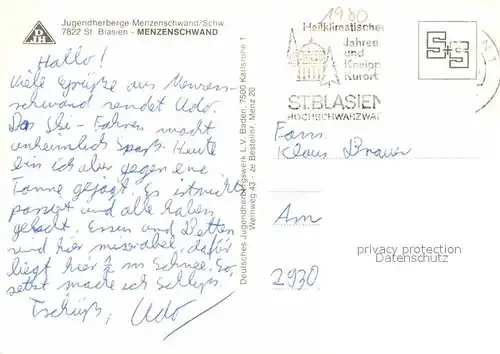 DJH
Jugendherberge Menzenschwand/Schw.
7822 St. Blasien - MENZENSCHWAND
Hallo!
Viele Grüße aus Menzen-
schwand sendet Udo.
Das Ski-Fahren macht
unheimlich Spaß. Heute
bin ich aber gegen eine
Tanne gejagt. Es ist nichts
passiert und alle haben
gelacht. Essen und Betten
sind hier miserabel, dafür
liegt hier im Schnee. So,
jetzt mache ich Schluß.
Tschüß, Udo
Deutsches Jugendherbergswerk L.V. Baden, 7500 Karlsruhe 1
Weinweg 43 - ze Bestellnr. Menz 20
1980
Heilklimatischer
Jahren
und
Kneipp
Kurort
ST.BLASIEN
HOCHSCHWARZWAL
S+S
Fam.
Klaus Brauer
Am
2930
privacy protection
Datenschutz